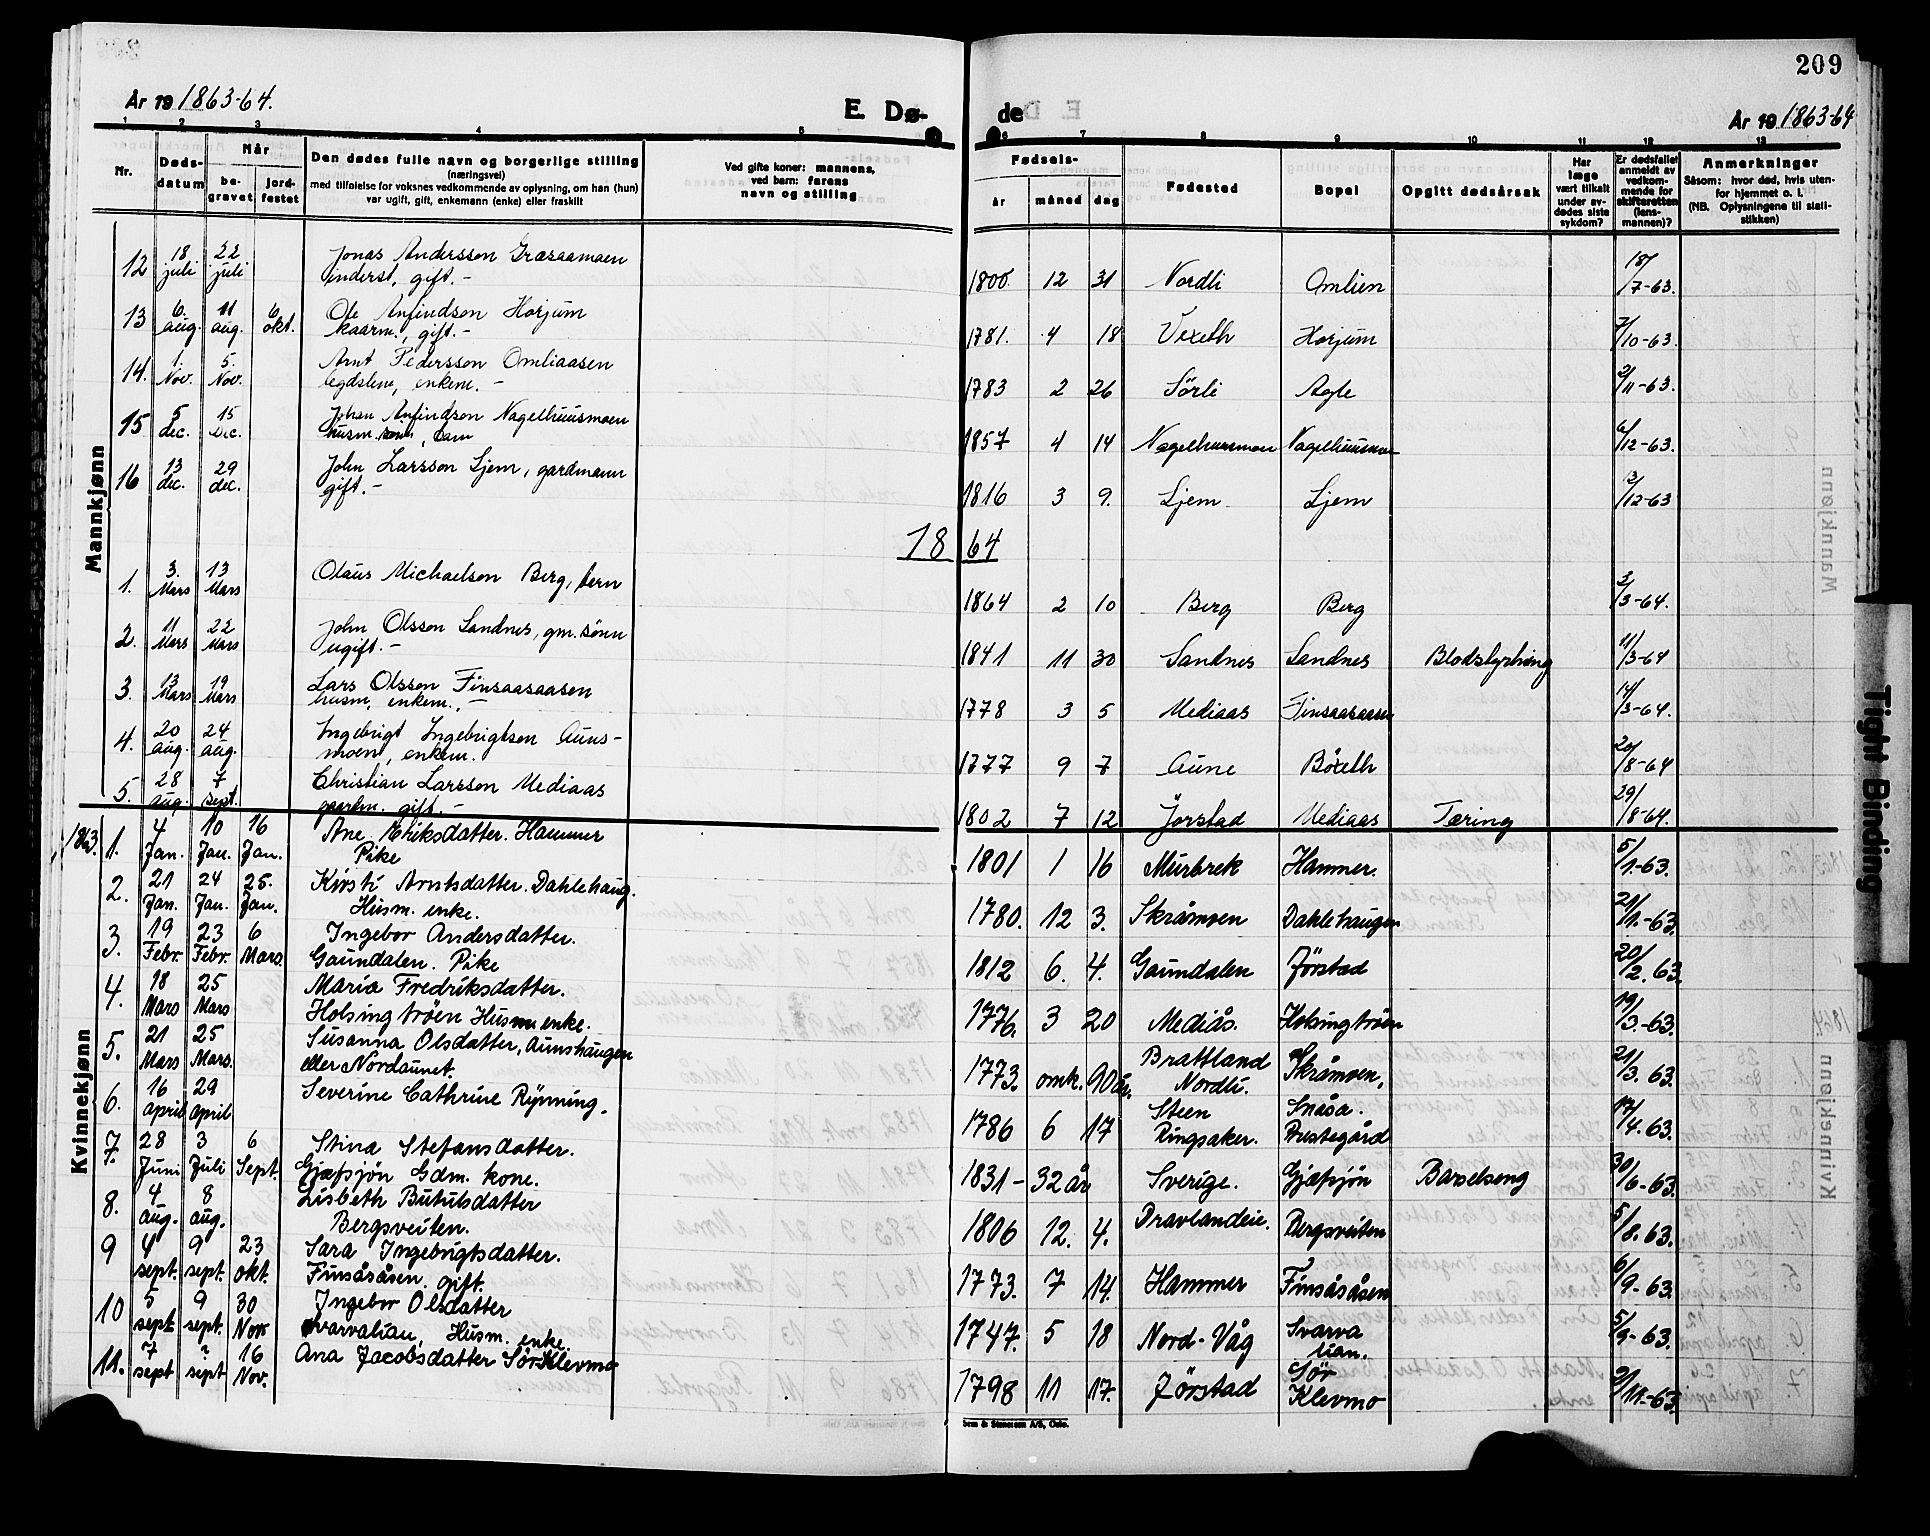 209
År 19 1863-64.
E. Dø-
de
År 19 1863-64
1 2 3 4 5 6 7 8 9 10 11 12 13
Nr.
Døds-
datum
Når
be-
gravet
jord-
festet
Den dødes fulle navn og borgerlige stilling
(næringsvei)
med tilføielse for voksnes vedkommende av oplysning, om han (hun)
var ugift, gift, enkemann (enke) eller fraskilt
Ved gifte koner: mannens,
ved barn: farens
navn og stilling
Fødsels-
år måned dag
Fødested
Bopel
Opgitt dødsårsak
Har
læge
vært tilkalt
under av-
dødes siste
sykdom?
Er dødsfallet
anmeldt av
vedkom-
mende for
skifteretten
(lens-
mannen)?
Anmerkninger
Såsom: hvor død, hvis uten-
for hjemmet o. l.
(NB. Oplysningene til stati-
stikken)
Mannkjønn
12 18 juli 22 juli Jonas Andersson Græsaamoen
inderst, gift.- 1800. 12 31 Nordli Omlien 18/7-63.
13 6. aug. 11 aug. 6 okt. Ole Anfindson Horjum
kaarm., gift.- 1781. 4 18 Vexeth Horjum 7/10-63.
14. 1. Nov. 5. Nov. Arnt Pedersson Omliaasen
legdslem, enkem.- 1783 2 26 Sörli Agle 2/11-63.
15 5 dec. 15 Dec. Johan Anfindson Nagelhuusmoen
husm. sön, barn 1857 4 14 Nagelhuusmoen Nagelhuusmoen 6/12-63.
16 13 dec. 29 dec. John Larsson Ljem, gardmann
gift.- 1816 3 9. Ljem Ljem 13/12-63
1864
1. 3. Mars 13 Mars Olaus Michaelson Berg, barn 1864 2 10 Berg Berg 3/3-64.
2. 11 Mars 22 Mars John Olsson Sandnes, gm. sönn
ugift.- 1841 11 30 Sandnes Sandnes Blodstyrtning 11/3-64
3. 13 Mars 19 Mars Lars Olsson Finsaasaasen
husm, enkem.,- 1778 3 5 Mediaas Finsaasaasen 14/3-64.
4. 20 aug. 24 aug. Ingebrigt Ingebrigtson Auns-
moen, enkem. 1777 9 7 Aune Böxeth 20/8-64
5. 28 aug. 7 sept. Christian Larsson Mediaas
gaardm. gift- 1802 7 12 Jörstad Mediaas Tæring 29/8-64.
Kvinnekjønn
1863. 1. 4 Jan. 10 Jan. 16 Jan. Ane Eriksdatter. Hammer
Pike 1801 1 16 Murbrek Hammer. 5/1-63.
2. 21 Jan. 24 Jan. 25. Jan. Kirsti Arntsdatter. Dahlehaug.
Husm. enke. 1780. 12 3. Skråmoen Dahlehaugen 21/1.-63.
3. 19 Febr. 23 Febr. 6 Mars. Ingebor Andersdatter.
Gaundalen. Pike 1812 6. 4. Gaundalen Jörstad 20/2. 63.
4. 18 Mars 25 Mars Maria Fredriksdatter.
Holsingtröen Husm enke. 1776. 3 20 Mediås. Holsingtröen 19/3.-63.
5. 21 Mars 25 Mars. Susanna Olsdatter, Aunshaugen
eller Nordaunet. 1773. omk. 90 år. Brattland
Nordli. Skråmoen. 21/3. 63.
6. 16 april 29 april Severine Cathrine Rynning. 1786 6 17 Steen
Ringsaker. Snåsa.
Prestegård 17/4. 63.
7. 28 Juni 3 Juli 6 Sept. Stina Stefansdatter.
Gjæfsjön Gdm. kone. 1831- 32 år Sverige. Gjæfsjön Barselseng 30/6-63.
8. 4 aug. 8 aug. Lisbeth Bututsdatter
Bergsveiten. 1806 12. 4. Dravlandeie. Bergsveiten 5/8. 63.
9 4 sept. 9 sept. 23 okt. Sara Ingebrigtsdatter.
Finsåsåsen. gift. 1773. 7 14. Hammer Finsåsåsen 6/9-63.
10 5 sept. 9 sept. 30 Nov Ingebor Olsdatter
Svarvalian, Husm. enke. 1747. 5 18 Nord-Våg Svarva
lian. 5/9-63.
11. 7 sept ? sept 16 Nov. Ana Jacobsdatter Sör Klevmo 1798 11 17. Jörstad Sör
Klevmo 9/11.-63.
Sem & Stenersen A/S, Oslo.
Tight Binding